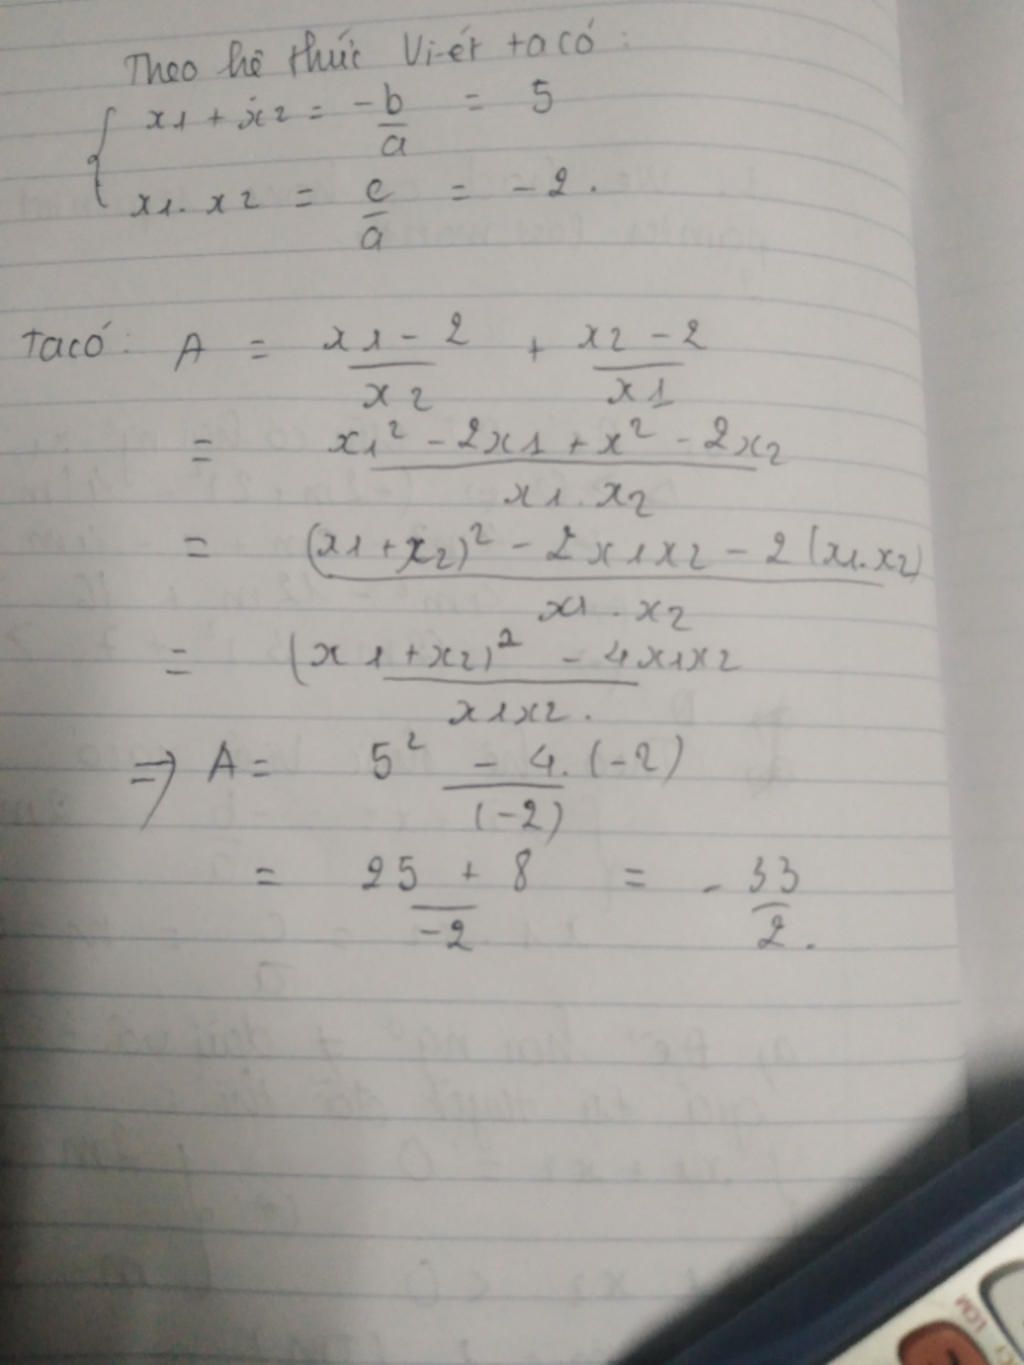 Theo hệ thức Vi-ét ta có:
x1 + x2 = -b/a = 5
x1. x2 = c/a = -2.
Ta có: A = (x1 - 2)/x2 + (x2 - 2)/x1
= (x1² - 2x1 + x² - 2x2)/(x1. x2)
= ((x1+x2)² - 2x1x2 - 2(x1.x2))/(x1. x2)
= ((x1+x2)² - 4x1x2)/(x1x2).
=> A = (5² - 4.(-2))/(-2)
= (25 + 8)/-2 = -33/2.
LCM